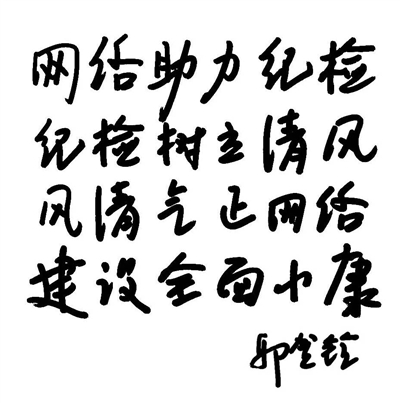 网络助力纪检
纪检树立清风
风清气正网络
建设全面小康